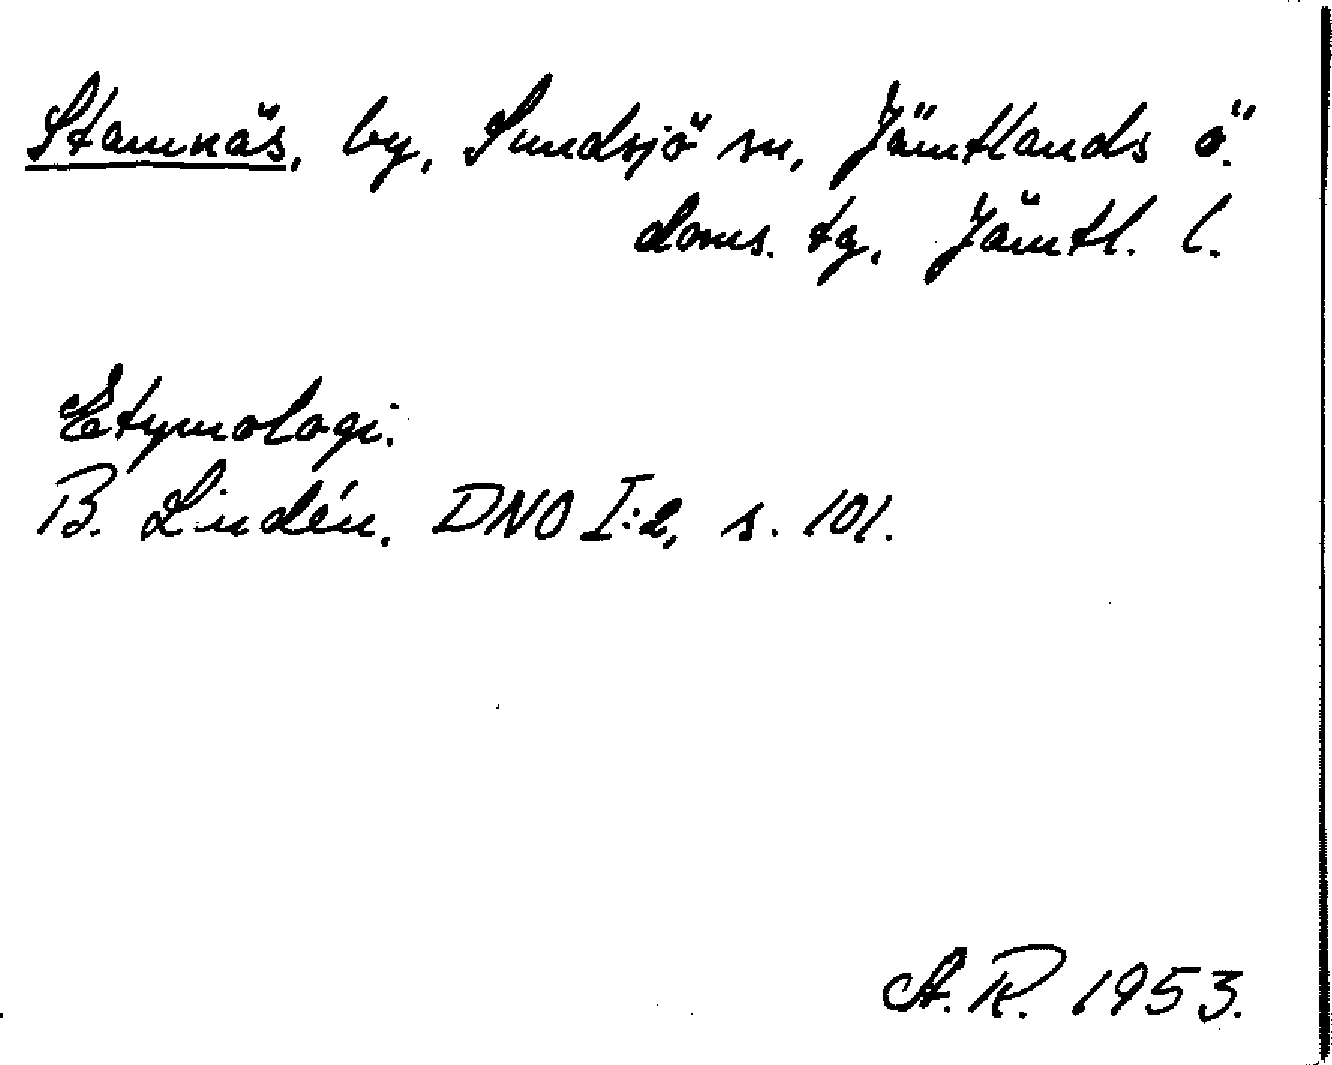 Stamnäs, by, Sundsjö sn, Jämtlands ö.
doms. tg, Jämtl. l.
Etymologi.
B. Lindén, DNO I:2, s. 101.
A. R. 1953.